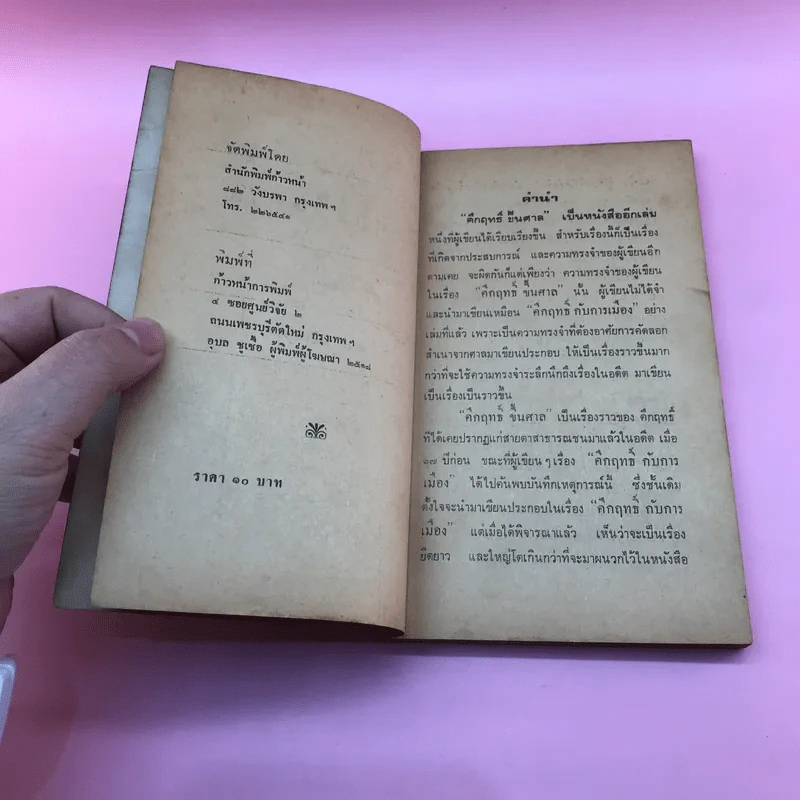 จัดพิมพ์โดย
สำนักพิมพ์ก้าวหน้า
๘๘๒ วังบูรพา กรุงเทพ ฯ
โทร. ๒๒๖๕๔๑
พิมพ์ที่
ก้าวหน้าการพิมพ์
๔ ซอยศูนย์วิจัย ๒
ถนนเพชรบุรีตัดใหม่ กรุงเทพ ฯ
อุบล ชูเชื้อ ผู้พิมพ์ผู้โฆษณา ๒๕๑๘
ราคา ๑๐ บาท
คำนำ
“คึกฤทธิ์ ขึ้นศาล” เป็นหนังสืออีกเล่ม
หนึ่งที่ผู้เขียนได้เรียบเรียงขึ้น สำหรับเรื่องนี้ก็เป็นเรื่อง
ที่เกิดจากประสบการณ์ และความทรงจำของผู้เขียนอีก
ตามเคย จะผิดกันก็แต่เพียงว่า ความทรงจำของผู้เขียน
ในเรื่อง “คึกฤทธิ์ ขึ้นศาล” นั้น ผู้เขียนไม่ได้จำ
และนำมาเขียนเหมือน “คึกฤทธิ์ กับการเมือง” อย่าง
เล่มที่แล้ว เพราะเป็นความทรงจำที่ต้องอาศัยการคัดลอก
สำเนาจากศาลมาเขียนประกอบ ให้เป็นเรื่องราวขึ้นมาก
กว่าที่จะใช้ความทรงจำระลึกนึกถึงเรื่องในอดีต มาเขียน
เป็นเรื่องเป็นราวขึ้น
“คึกฤทธิ์ ขึ้นศาล” เป็นเรื่องราวของ คึกฤทธิ์
ที่ได้เคยปรากฏแก่สายตาสาธารณชนมาแล้วในอดีต เมื่อ
๑๗ ปีก่อน ขณะที่ผู้เขียน ๆ เรื่อง “คึกฤทธิ์ กับการ
เมือง” ได้ไปค้นพบบันทึกเหตุการณ์นี้ ซึ่งชั้นเดิม
ตั้งใจจะนำมาเขียนประกอบในเรื่อง “คึกฤทธิ์ กับการ
เมือง” แต่เมื่อได้พิจารณาแล้ว เห็นว่าจะเป็นเรื่อง
ยืดยาว และใหญ่โตเกินกว่าที่จะมาผนวกไว้ในหนังสือ